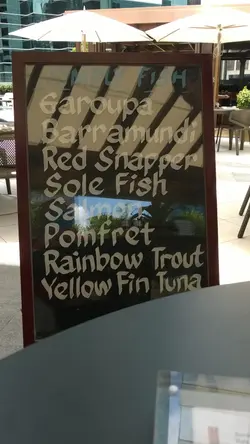 FISH
Garoupa
Barramundi
Red Snapper
Sole Fish
Salmon
Pomfret
Rainbow Trout
Yellow Fin Tuna